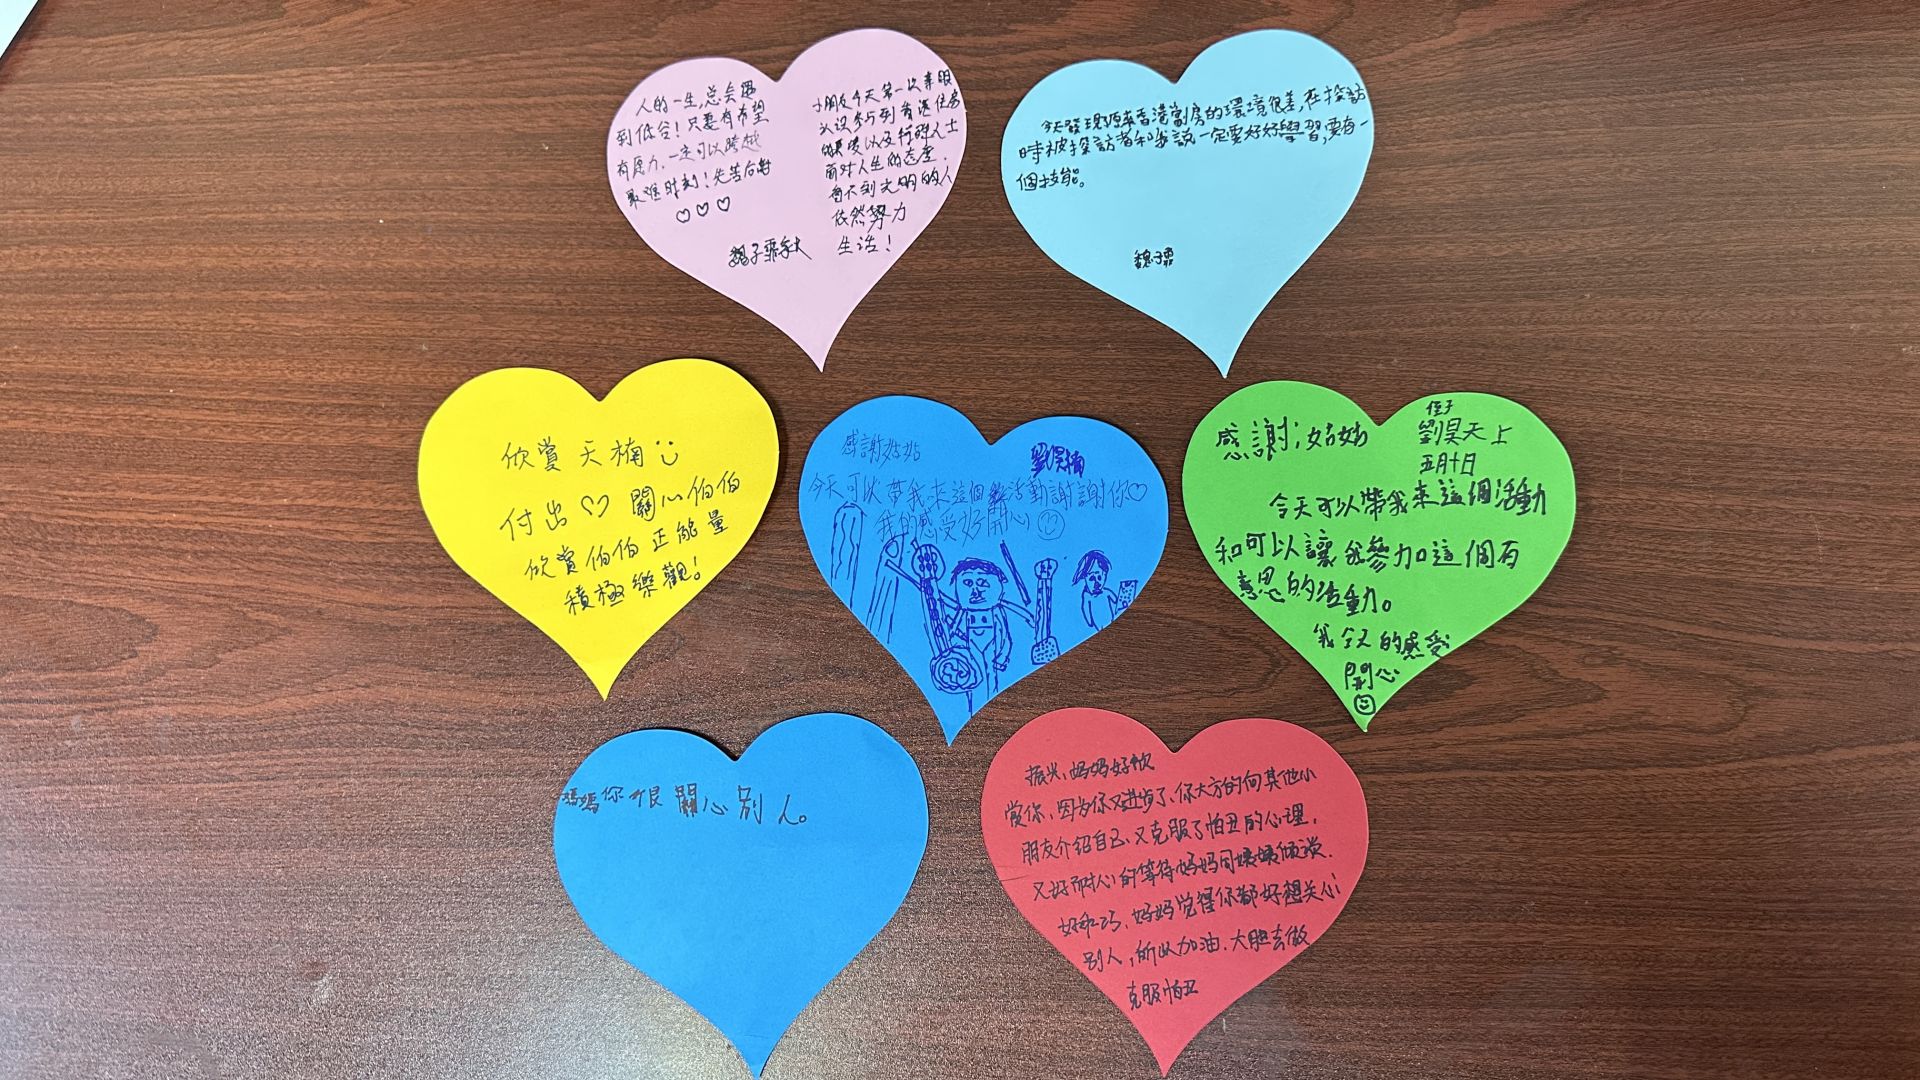 人的一生,总会遇
到低谷！只要有希望
有愿力,一定可以跨越
最难时刻！先苦后甜
♡♡♡
魏子霏家长
小朋友今天第一次亲眼
认识参与到香港住房
以及行群人士
面对人生的态度.
看不到光明的人
依然努力
生活！
今天發現原來香港劏房的環境很差,在探訪
時被探訪者和我說一定要好好學習,要有一
個技能。
魏子霏
欣賞天楠
付出♡關心伯伯
欣賞伯伯正能量
積極樂觀！
感謝姑姑
劉昊楠
今天可以帶我來這個活動謝謝你♡
我的感受好開心
感謝;姑姑
侄子
劉昊天上
五月十日
今天可以帶我來這個活動
和可以讓我參加這個有
意思的活動。
我今天的感受
開心
媽媽你很關心別人。
振兴、妈妈好欣
赏你、因为你又进步了、你大方的向其他小
朋友介绍自己、又克服了怕丑的心理.
又好耐心的等待妈妈同姨姨倾谈.
好乖巧、妈妈觉得你都好想关心
别人,所以加油.大胆去做
克服怕丑